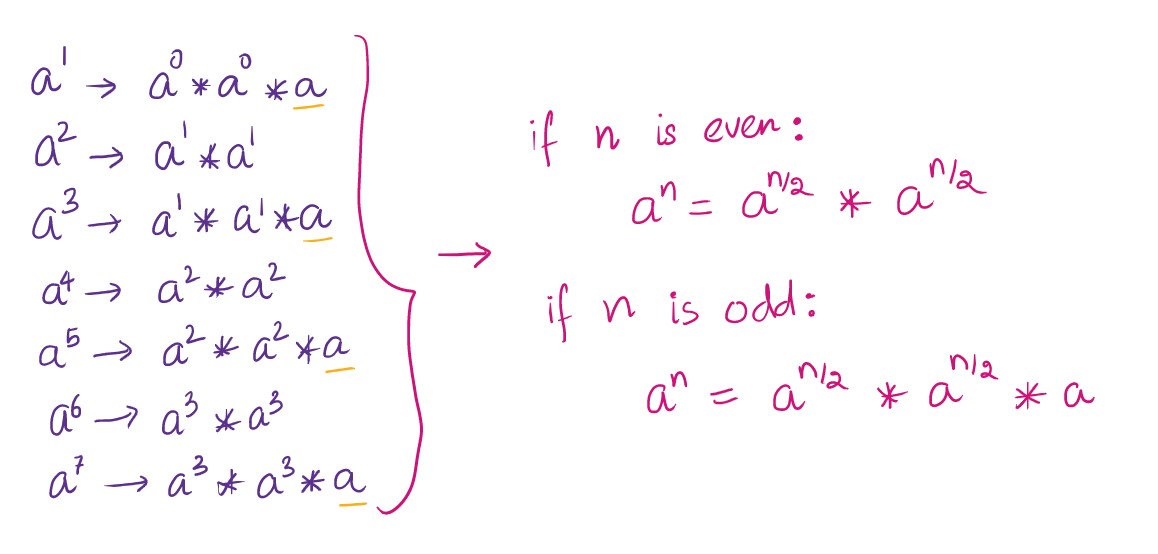 a¹ → a⁰ * a⁰ * a
a² → a¹ * a¹
a³ → a¹ * a¹ * a
a⁴ → a² * a²
a⁵ → a² * a² * a
a⁶ → a³ * a³
a⁷ → a³ * a³ * a
→
if n is even:
aⁿ = a^{n/2} * a^{n/2}
if n is odd:
aⁿ = a^{n/2} * a^{n/2} * a